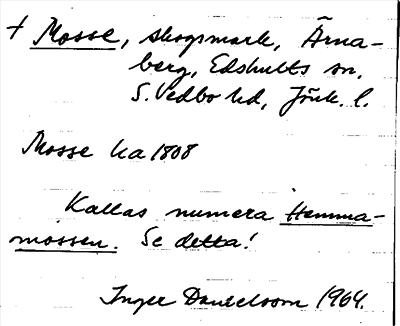 † Mosse, skogsmark, Ärna-
berg, Edshults sn,
S. Vedbo hd, Jönk. l.
Mosse ha 1808
Kallas numera Hemma-
mossen. Se detta!
Inger Danielsson 1964.